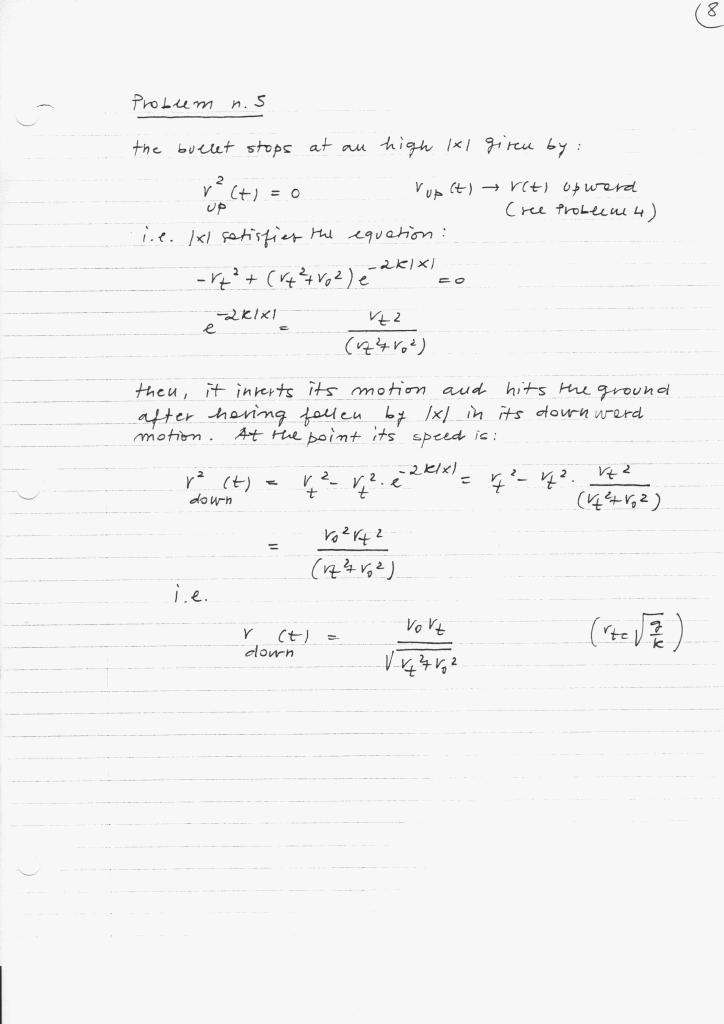 8
Problem n. 5
the bullet stops at an high |x| given by :
v²up (t) = 0    vup (t) → v(t) upward
(see Problem 4)
i.e. |x| satisfies the equation :
-vt² + (vt² + v0²) e^-2k|x| = 0
e^-2k|x| = vt² / (vt² + v0²)
then, it inverts its motion and hits the ground
after having fallen by |x| in its downward
motion. At the point its speed is :
v²down (t) = vt² - vt² . e^-2k|x| = vt² - vt² . vt² / (vt² + v0²)
= v0² vt² / (vt² + v0²)
i.e.
vdown (t) = v0 vt / √(vt² + v0²)    (vt = √(g/k))